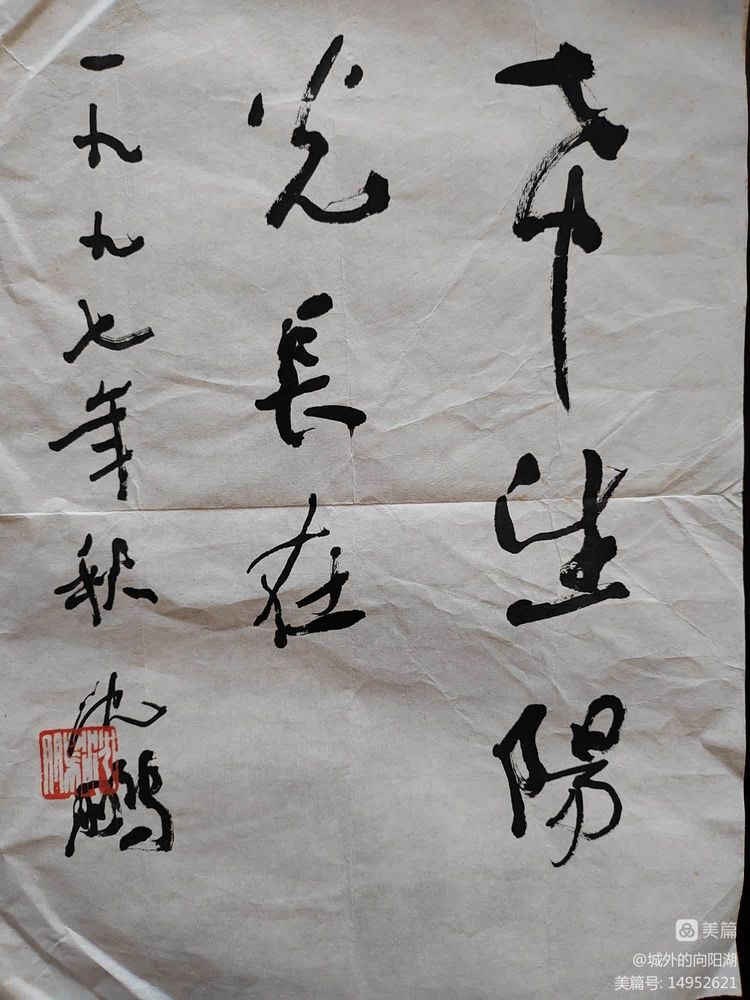 希望陽
光長在
一九九七年秋 沈鵬
美篇
@城外的向阳湖
美篇号: 14952621